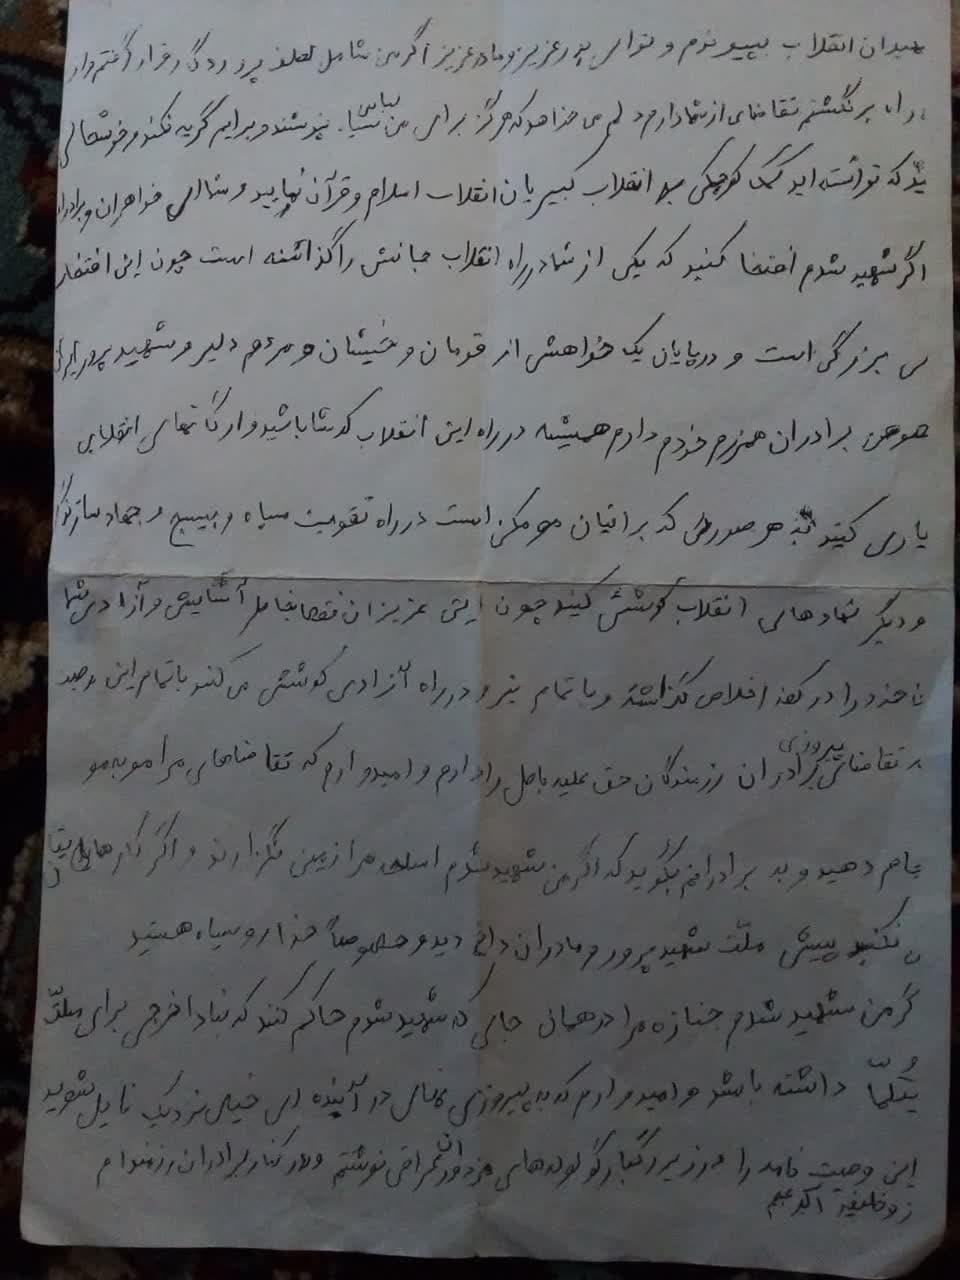 میدان انقلاب بپیوندم و توای پدر عزیز و مادر عزیز اگر من شامل لطف پروردگار قرار گرفتم و از
راه برنگشتم تقاضای از شما دارم دلم می خواهد که هرگز برای من لباس سیاه نپوشند و برایم گریه نکند و خوشحالی
ید که توانسته اید کمک کوچکی به انقلاب کبیر یان انقلاب اسلام و قرآن نمایید و شما ای خواهران و برادران
اگر شهید شدم افتخا کنید که یکی از شما در راه انقلاب جانش را گذاشته است چون این افتخار
ی بزرگی است و در پایان یک خواهشی از قومان و خیشان و مردم دلیر و شهید پرور
هومن برادران همزرم خودم دارم همیشه در راه این انقلاب کوشا باشید و ارگانهای انقلابی
یاری کنید به هر صورتی که برایتان مومکن است در راه تقویت سپاه و بسیج و جهاد سازندگی
و دیگر نهادهای انقلاب کوشش کنید چون این عزیزان فقط بخاطر آسایش و آزادی شما
خود را در کف اخلاص گذاشته و با تمام نیرو در راه آزادی کوشش می کنند با تمام این وجود
تقاضای پیروزی برادران رزمندگان حق علیه باطل را دارم و امیدوارم که تقاضاهای مرا مو به مو
جام دهید و به برادرانم بگویید که اگر من شهید شدم اسلحه مرا زمین نگزارند و اگر کارهای
نکنید پیش ملت شهید پرور و مادران داغ دیده و خصوصاً خدا رو سیاه هستید
گر من شهید شدم جنازه مرا در همان جای که شهید شدم حاکم کنند که نباد اخرجی برای ملت
داشته باشد و امیدوارم که به پیروزی نهای در آینده ای خیلی نزدیک نایل شوید
این وصیت نامه را در زیر رگبار گلوله های مزدوران عراقی نوشتم و در کنار برادران رزمنده ام
اکبر